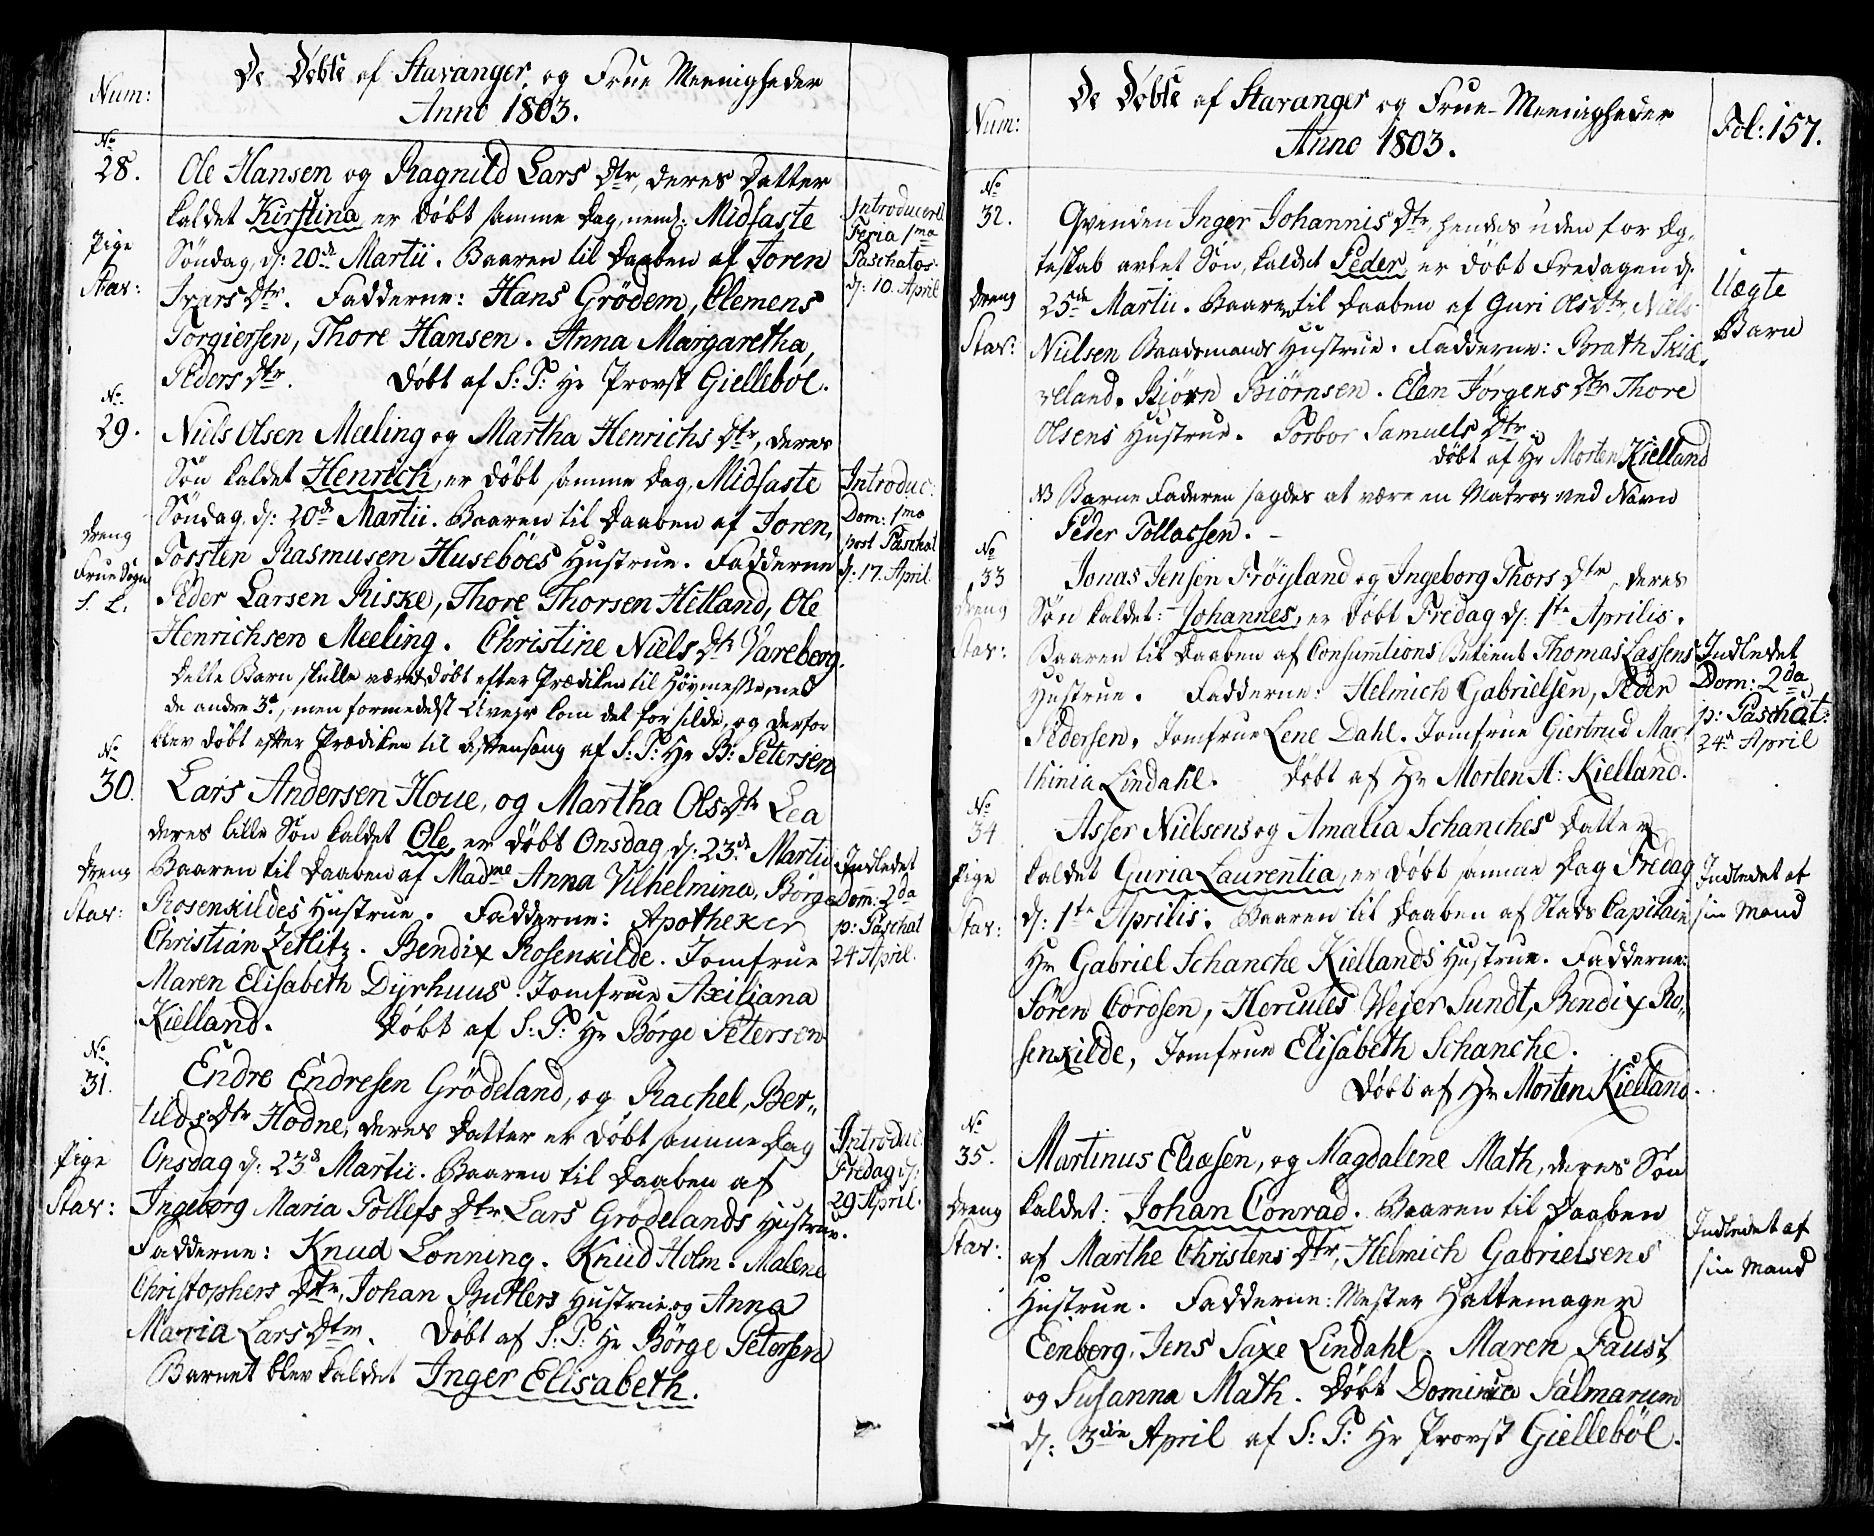 Num:
De Döbte af Stavanger og Frue Meenigheder
Anno 1803.
No
28.
Pige
Stav:
Ole Hansen og Ragnild Lars Dtr, deres Datter
kaldet Kirstina er döbt samme Dag, neml: Midfaste
Söndag, d: 20de Martii. Baaren til Daaben af Joren
Ivars Dtr. Fadderne: Hans Grödem, Clemens
Torgiersen, Thore Hansen. Anna Margaretha
Peders Dtr. Döbt af S: T: Hr Provst Giellebøl.
Introduceret
Feria 1ma
Paschatos
d: 10. April
No
29.
Dreng
Frue Sogn
S. L.
Niels Olsen Meeling og Martha Henrichs Dtr, deres
Søn kaldet Henrich, er döbt samme Dag, Midfaste
Söndag, d: 20de Martii. Baaren til Daaben af Joren,
Tosten Rasmusen Huseböes Hustrue. Fadderne
Peder Larsen Riske, Thore Thorsen Helland, Ole
Henrichsen Meeling. Christine Niels Dtr Vareberg.
Dette Barn skulle været döbt efter Prædiken til Höymesse med
de andre 3de, men formedelst Uvejr kom det for silde, og derfor
blev döbt efter Prædiken til Aftensang af S: T: Hr B: Petersen
Introduc:
Dom: 1ma
post Paschat
d: 17. April
No
30.
Dreng
Stav:
Lars Andersen Houe, og Martha Ols Dtr Lea
deres lille Søn kaldet Ole, er döbt Onsdag, d: 23de Martii
Baaren til Daaben af Madme Anna Vilhelmina, Börge
Rosenkildes Hustrue. Fadderne: Apotheker
Christian Zetlitz. Bendix Rosenkilde. Jomfrue
Maren Elisabeth Dyrhuus. Jomfrue Axiliana
Kielland. Döbt af S: T: Hr Börge Petersen
Indledet
Dom: 2da
p: Paschat
24 April.
No
31.
Pige
Stav:
Endre Endresen Grödeland, og Rachel, Ber-
tilds Dtr Hodne, deres Datter er döbt samme Dag
Onsdag d: 23de Martii. Baaren til Daaben af
Ingeborg Maria Tollefs Dtr, Lars Grödelands Hustrue.
Fadderne: Knud Lonning. Knud Holm. Malene
Christophers Dtr, Johan Butlers Hustrue og Anna
Maria Lars Dtr. Döbt af S: T: Hr Börge Petersen
Barnet blev kaldet Inger Elisabeth.
Introduc:
Fredag d:
29 April.
Num:
De Döbte af Stavanger og Frue-Meenigheder
Anno 1803.
Fol: 157.
No
32.
Dreng
Stav:
Qvinden Inger Johannis Dtr, hendes uden for Æg-
teskab avlet Søn, kaldet Peder, er döbt Fredagen d:
25de Martii. Baaren til Daaben af Guri Ols Dtr, Niels
Nielsen Baadsmands Hustrue. Fadderne: Brath Skie-
veland. Björn Biörnsen. Elen Jörgens Dtr Thore
Olsens Hustrue. Torbor Samuels Dtr.
Döbt af Hr Morten Kielland
NB Barne Faderen sagdes at være en Matros ved Navn
Peder Tollassen.
Uægte
Barn
No
33
Dreng
Stav:
Jonas Jensen Fröyland og Ingeborg Thors Dtr, deres
Søn kaldet: Johannes, er döbt Fredag d: 1ste Aprilis.
Baaren til Daaben af Consumtions Betient Thomas Lassens
Hustrue. Fadderne: Helmich Gabrielsen, Peder
Pedersen. Jomfrue Lene Dahl. Jomfrue Giertrud Mar-
thinia Lindahl. Döbt af Hr Morten A: Kielland.
Indledet
Dom: 2da
p: Paschat:
24de April
No
34
Pige
Stav:
Asser Nielsens og Amalia Schanches Datter
kaldet Guria Laurentia, er döbt samme Dag Fredag
d: 1ste Aprilis. Baaren til Daaben af Stads Capitain
Hr Gabriel Schanche Kiellands Hustrue. Fadderne:
Sören Cordsen, Hercules Wejer Sundt, Bendix Ro-
senkilde, Jomfrue Elisabeth Schanche.
Döbt af Hr Morten Kielland.
Indledet af
sin Mand
No
35.
Dreng
Stav:
Martinus Eliasen, og Magdalene Math, deres Søn
kaldet: Johan Conrad. Baaren til Daaben
af Marthe Christens Dtr, Helmich Gabrielsens
Hustrue. Fadderne: Mester Hattemager
Eenberg, Jens Saxe Lindahl. Maren Faust
og Susanna Math. Döbt Dominica Palmarum
d: 3die April af S: T: Hr Provst Giellebøl.
Indledet af
sin Mand